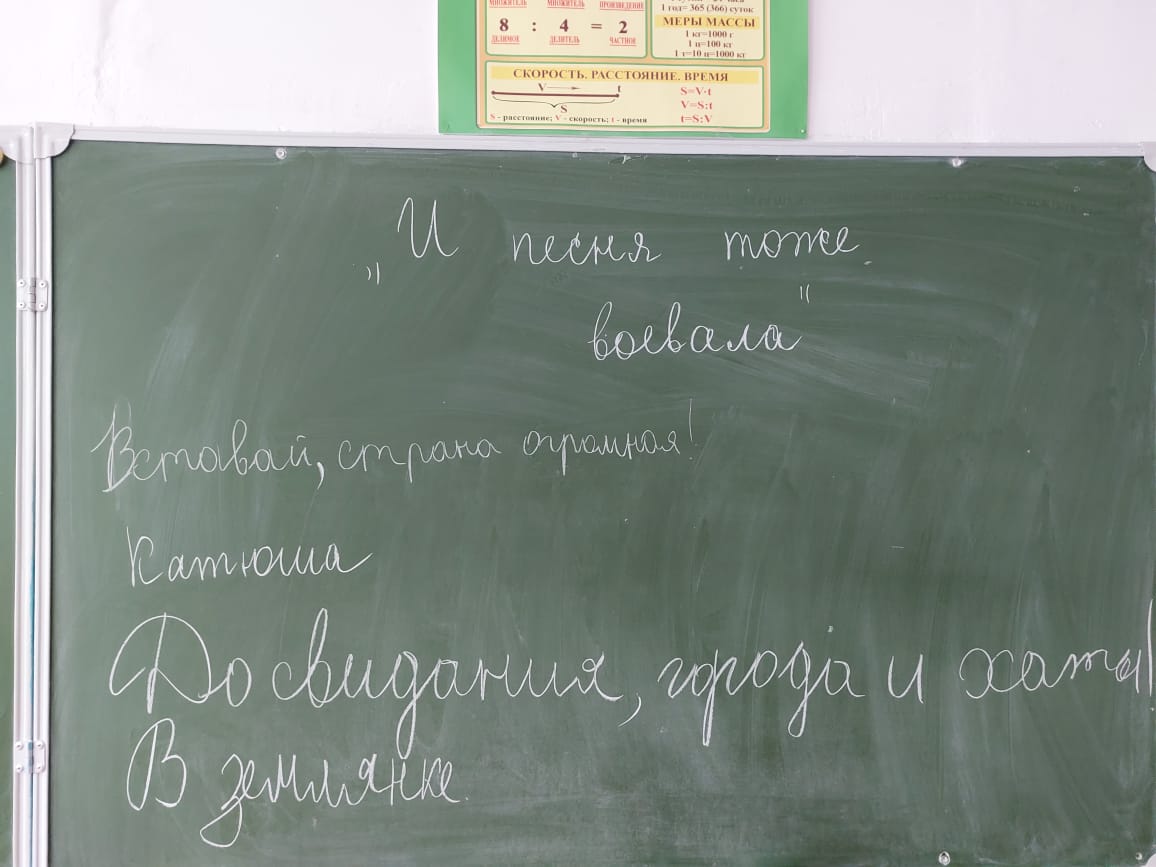 МНОЖИТЕЛЬ МНОЖИТЕЛЬ ПРОИЗВЕДЕНИЕ
8 : 4 = 2
ДЕЛИМОЕ ДЕЛИТЕЛЬ ЧАСТНОЕ
1 год= 365 (366) суток
МЕРЫ МАССЫ
1 кг=1000 г
1 ц=100 кг
1 т=10 ц=1000 кг
СКОРОСТЬ. РАССТОЯНИЕ. ВРЕМЯ
V t
S
S - расстояние; V - скорость; t - время
S=V·t
V=S:t
t=S:V
„И песня тоже
воевала"
Вставай, страна огромная!
Катюша
До свидания, города и хаты
В землянке.